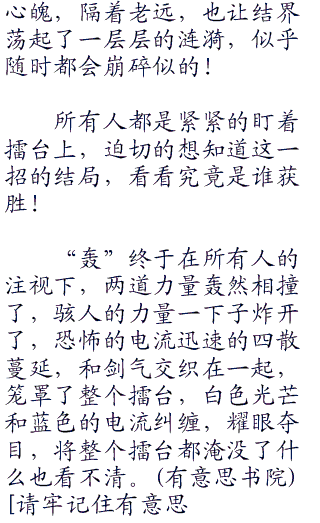 心魄，隔着老远，也让结界
荡起了一层层的涟漪，似乎
随时都会崩碎似的！
所有人都是紧紧的盯着
擂台上，迫切的想知道这一
招的结局，看看究竟是谁获
胜！
“轰”终于在所有人的
注视下，两道力量轰然相撞
了，骇人的力量一下子炸开
了，恐怖的电流迅速的四散
蔓延，和剑气交织在一起，
笼罩了整个擂台，白色光芒
和蓝色的电流纠缠，耀眼夺
目，将整个擂台都淹没了什
么也看不清。(有意思书院)
[请牢记住有意思